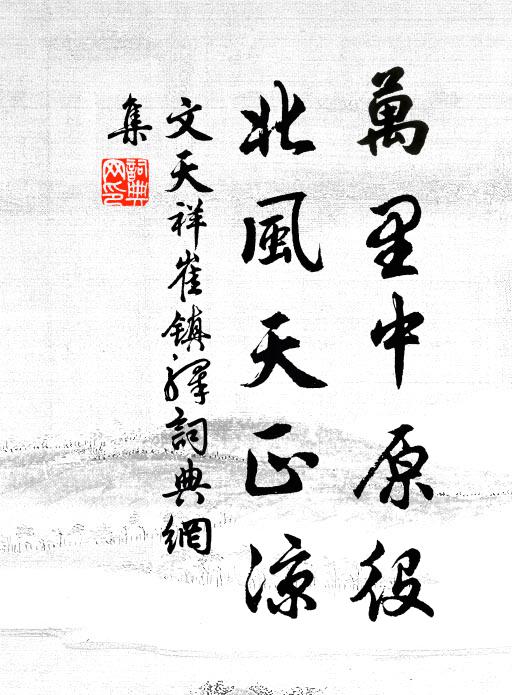 萬里中原役
北風天正涼
文天祥崔鎮驛詞典網
集
詞典
网印